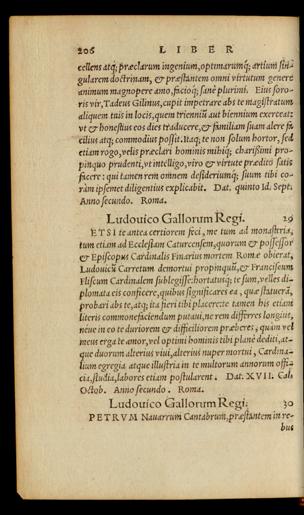 206 LIBER
cellens atq; præclarum ingenium, optimarumq; artium sin
gularem doctrinam, & præstantem omni virtutum genere
animum magnopere amo, facioq; sanè plurimi. Eius soro-
ris vir, Tadeus Gilinus, cupit impetrare abs te magistratum
aliquem tuis in locis, quem trienniũ aut biennium exerceat:
vt & honestius eos dies traducere, & familiam suam alere fa
cilius atq; commodius possit. Itaq; te non solum hortor, sed
etiam rogo, velis præclari hominis mihiq; charissimi pro-
pinquo prudenti, vt intellego, viro & virtute prædito satis
facere: qui tamen rem omnem desideriumq; suum tibi co-
ràm ipsemet diligentius explicabit. Dat. quinto Id. Sept.
Anno secundo. Roma.
Ludouico Gallorum Regi. 29
ETSI te antea certiorem feci, me tum ad monasteria,
tum etiam ad Ecclesiam Caturcensem, quorum & possessor
& Episcopus Cardinalis Finarius mortem Romæ obierat,
Ludouicũ Carretum demortui propinquũ, & Franciscum
Fliscum Cardinalem sublegisse: hortatusq; te sum, velles di-
plomata eis conficere, quibus significares ea, quæ statuerã,
probari abs te, atq; ita fieri tibi placere: te tamen his etiam
literis commonefaciendum putaui, ne rem differres longius,
néue in eo te duriorem & difficiliorem præberes, quàm vel
meus erga te amor, vel optimi hominis tibi planè dediti, at-
que duorum alterius viui, alterius nuper mortui, Cardina-
lium egregia atque illustria in te multorum annorum offi-
cia, studia, labores etiam postularent. Dat. XVII. Cal.
Octob. Anno secundo. Roma.
Ludouico Gallorum Regi. 30
PETRVM Nauarrum Cantabrum, præstantem in re-
bus